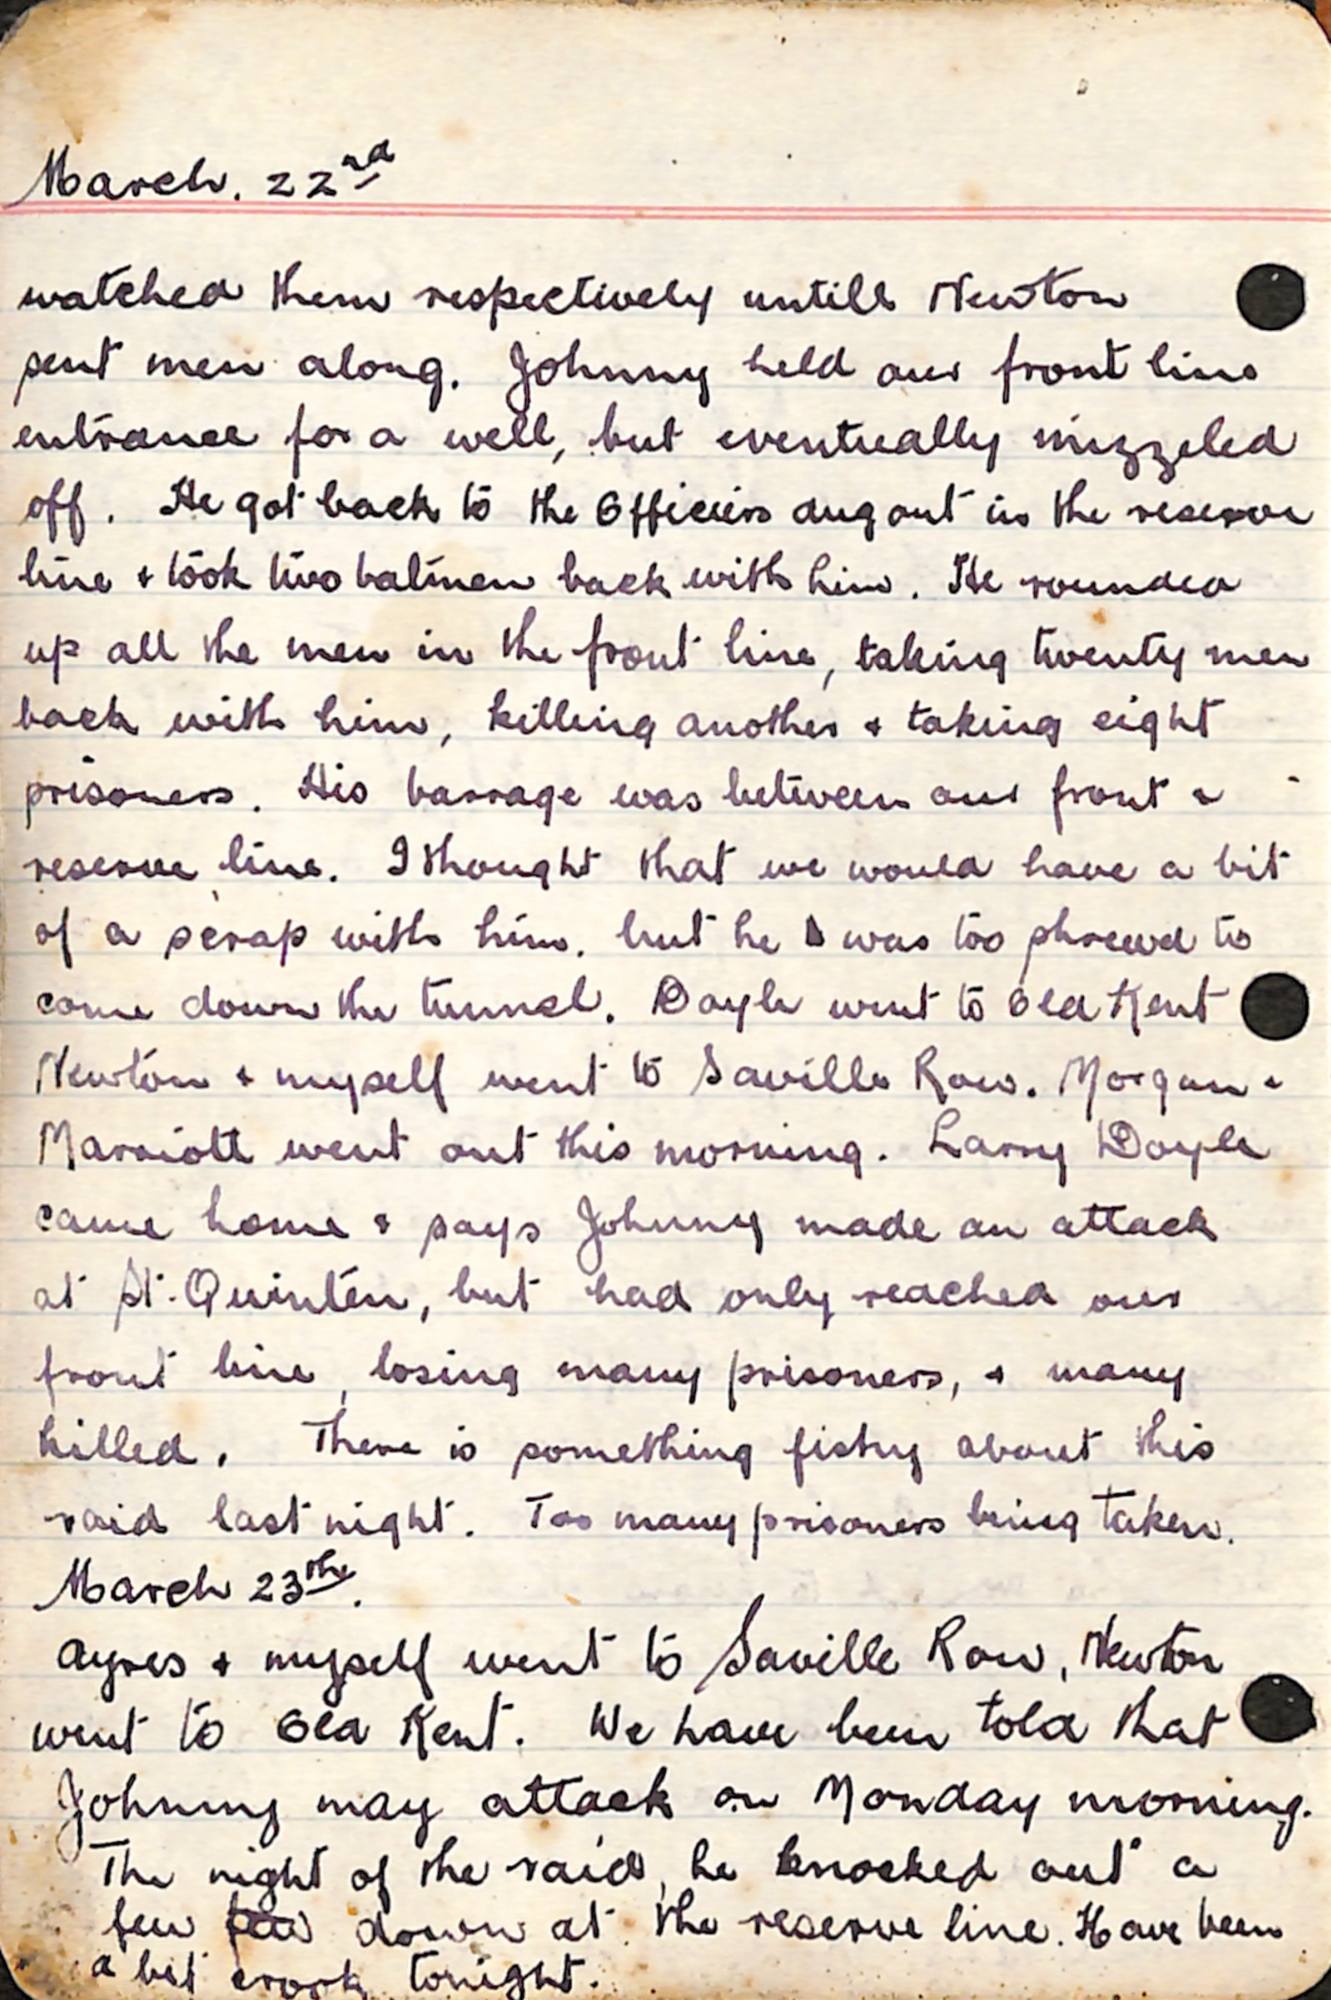 March. 22nd
watched them respectively untill Newton
sent men along. Johnny held our front line
entrance for a well, but eventually mizzeled
off. He got back to the Officiers dugout in the reserve
line + took two batmen back with him. He rounded
up all the men in the front line, taking twenty men
back with him, killing another + taking eight
prisoners. His barrage was between our front +
reserve line. I thought that we would have a bit
of a scrap with him. but he was too shrewd to
come down the tunnel. Doyle went to Old Kent
Newton + myself went to Saville Row. Morgan +
Marriott went out this morning. Larry Doyle
came home + says Johnny made an attack
at St. Quinten, but had only reached our
front line, losing many prisoners, + many
killed. There is something fishy about this
raid last night. Too many prisoners being taken.
March 23the.
Ayres + myself went to Saville Row, Newton
went to Old Kent. We have been told that
Johnny may attack on Monday morning.
The night of the raid, he knocked out a
few down at the reserve line. Have been
a bit crook tonight.